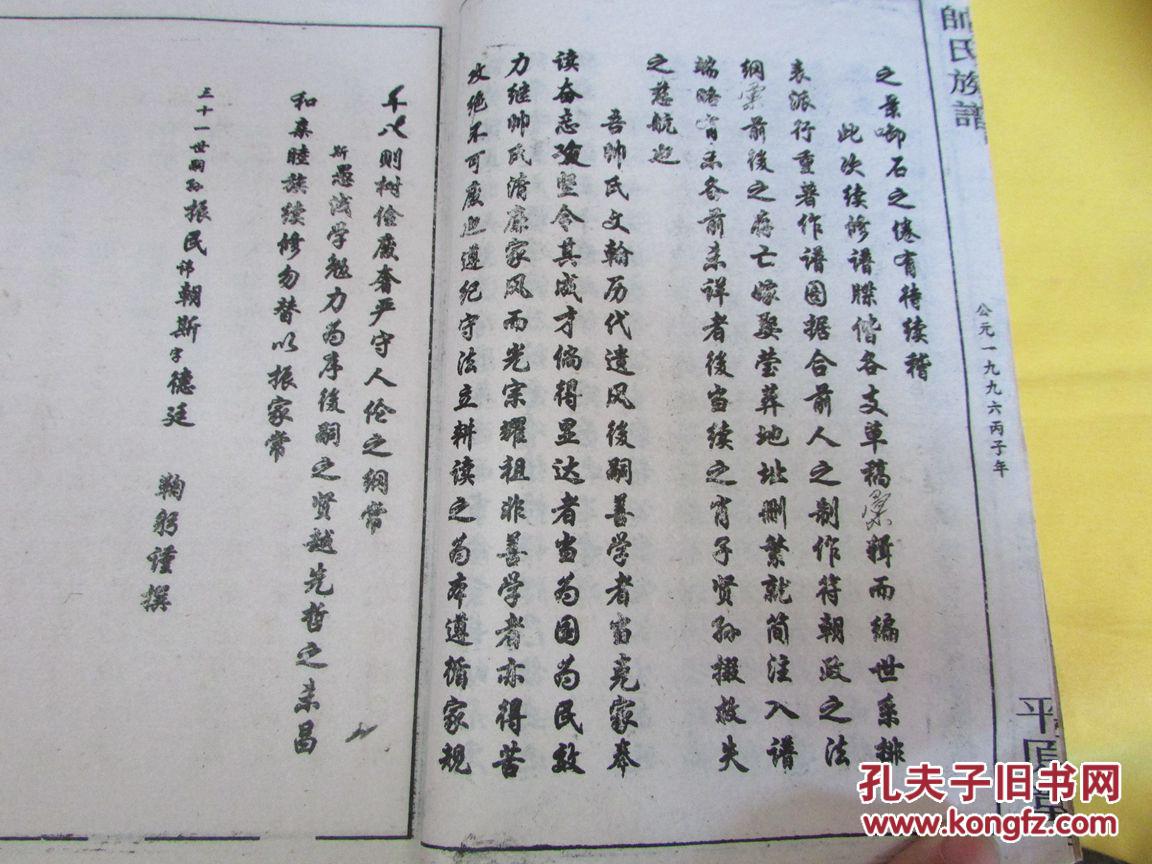 帥氏族譜
公元一九九六丙子年
之业啣石之倦有待续稽
此次续修谱牒偕各支草稿彙辑而编世系排
表派行重著作谱图据合前人之制作符朝政之法
纲彙前後之存亡嫁娶莹葬地址删繁就简注入谱
端略者系各前系详者後当续之肖子贤孙掇救失
之慈航迎
吾帅氏文翰历代遗风後嗣善学者当竞家奉
读奋志攻坚令其成才倘得显达者当为国为民效
力继帅氏清廉家风而光宗耀祖非善学者亦得苦
攻绝不可废迎遵纪守法立耕读之为本遵循家规
则树俭废奢严守人伦之纲常
斯愚浅学勉力为序後嗣之贤越先哲之未昌
和柔睦族续修勿替以振家常
三十一世嗣孙振民讳朝斯字德廷 鞠躬谨撰
平
孔夫子旧书网
www.kongfz.com